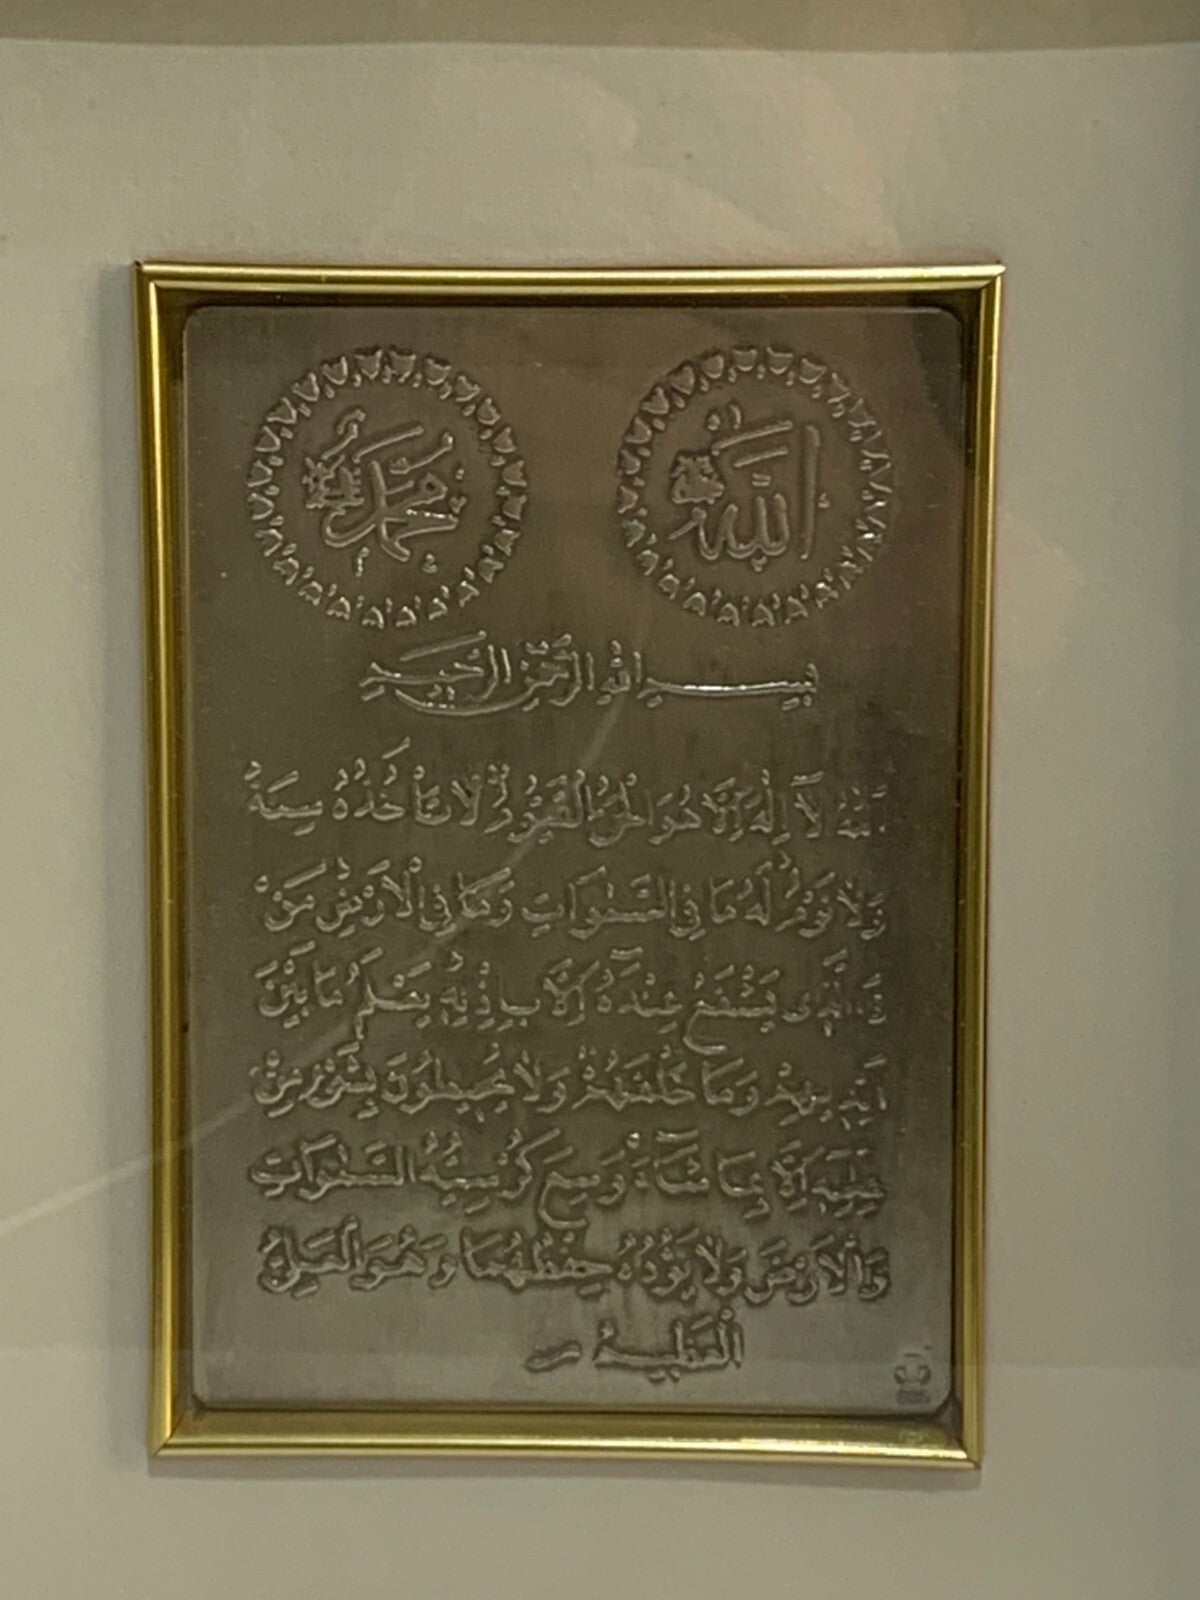 الله جل جلاله
محمد
بسم الله الرحمن الرحيم
اَللهُ لَآ اِلٰهَ اِلَّا هُوَ الْحَيُّ الْقَيُّومُ لَا تَأْخُذُهُ سِنَةٌ
وَلَا نَوْمٌ لَهُ مَا فِي السَّمٰوَاتِ وَمَا فِي الْاَرْضِ مَنْ
ذَا الَّذِي يَشْفَعُ عِنْدَهُٓ اِلَّا بِاِذْنِهِ يَعْلَمُ مَا بَيْنَ
اَيْدِيهِمْ وَمَا خَلْفَهُمْ وَلَا يُحِيطُونَ بِشَيْءٍ مِنْ
عِلْمِهِ اِلَّا بِمَا شَآءَ وَسِعَ كُرْسِيُّهُ السَّمٰوَاتِ
وَالْاَرْضَ وَلَا يَؤُدُهُ حِفْظُهُمَا وَهُوَ الْعَلِيُّ
الْعَظِيمُ